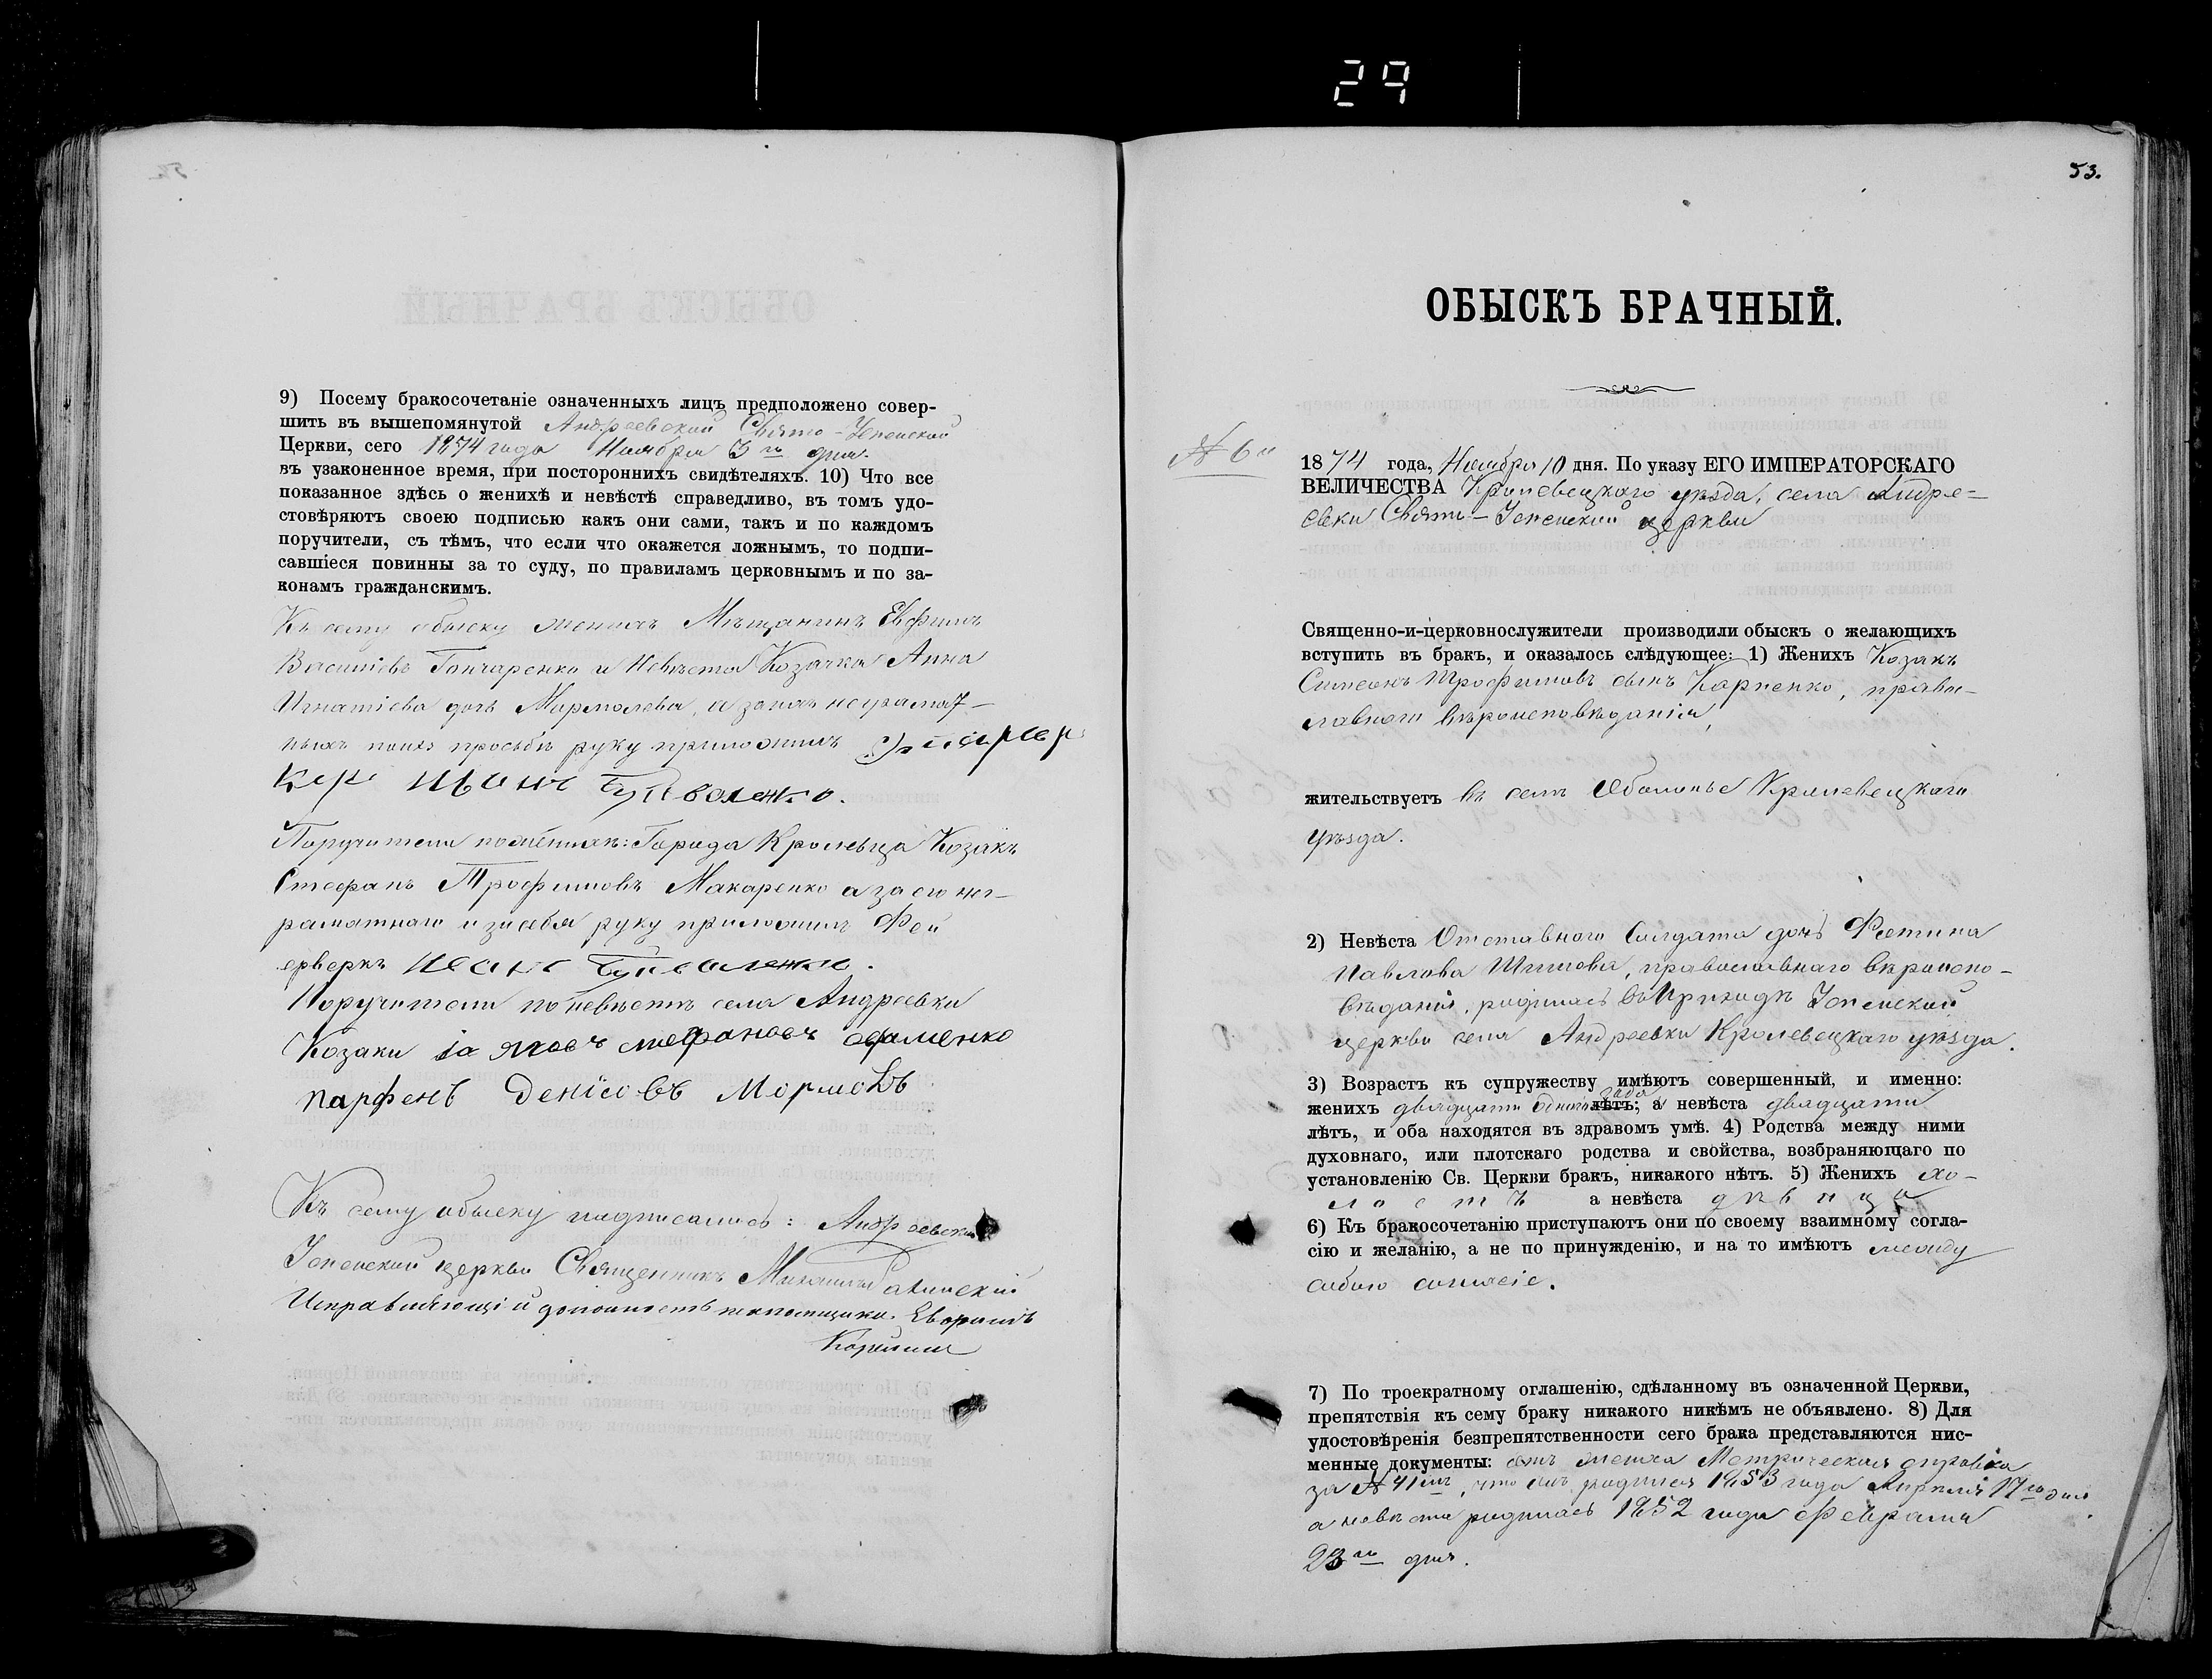 29
53.
9) Посему бракосочетаніе означенныхъ лицъ предположено совер-
шить въ вышепомянутой Андреевской Свято-Успенской
Церкви, сего 1874 года Ноября 3го дня.
въ узаконенное время, при постороннихъ свидѣтеляхъ. 10) Что все
показанное здѣсь о женихѣ и невѣстѣ справедливо, въ томъ удо-
стовѣряютъ своею подписью какъ они сами, такъ и по каждомъ
поручители, съ тѣмъ, что если что окажется ложнымъ, то подпи-
савшіеся повинны за то суду, по правиламъ церковнымъ и по за-
конамъ гражданскимъ.
Къ сему обыску женихъ Мѣщанинъ Евфимъ
Василіевъ Гончаренко и Невѣста Козачка Анна
Игнатіева дочь Мармолева, а за нихъ неграмот-
ныхъ по ихъ просьбѣ руку приложилъ
Иванъ
Поручители по женихѣ: Города Кролевца Козакъ
Стефанъ Трофимовъ Макаренко а за его нег-
рамотнаго и за себя руку приложилъ Фей
ерверкъ Иванъ
Поручители по невѣстѣ села Андреевки
Козаки Іаковъ Стефановъ
Парфенъ Денисовъ Мормолъ
Къ сему обыску подписались: Андреевской
Успенской церкви Священникъ Михаилъ
Исправляющій должность псаломщика
ОБЫСКЪ БРАЧНЫЙ.
№ 6й
1874 года, Ноября 10 дня. По указу ЕГО ИМПЕРАТОРСКАГО
ВЕЛИЧЕСТВА Кролевецкаго уѣзда, села Андре-
евки Свято-Успенской церкви
Священно-и-церковнослужители производили обыскъ о желающихъ
вступить въ бракъ, и оказалось слѣдующее: 1) Женихъ Козакъ
Симеонъ Трофимовъ сынъ Карпенко, право-
славнаго вѣроисповѣданія,
жительствуетъ въ селѣ Оболонье Кролевецкаго
уѣзда.
2) Невѣста Отставного Солдата дочь Фотина
Павлова, православнаго вѣроиспо-
вѣданія, родилась въ Приходѣ Успенской
церкви села Андреевки Кролевецкаго уѣзда.
3) Возрастъ къ супружеству имѣютъ совершенный, и именно:
женихъ двадцати одного года лѣтъ; а невѣста двадцати
лѣтъ, и оба находятся въ здравомъ умѣ. 4) Родства между ними
духовнаго, или плотскаго родства и свойства, возбраняющаго по
установленію Св. Церкви бракъ, никакого нѣтъ. 5) Женихъ хо-
лостъ а невѣста дѣвица
6) Къ бракосочетанію приступаютъ они по своему взаимному согла-
сію и желанію, а не по принужденію, и на то имѣютъ между
собою согласіе.
7) По троекратному оглашенію, сдѣланному въ означенной Церкви,
препятствія къ сему браку никакого никѣмъ не объявлено. 8) Для
удостовѣренія безпрепятственности сего брака представляются пис-
менные документы: Метрическая справка
за № 41мъ, что онъ родился 1853 года Апрѣля 17го дня
а невѣста родилась 1852 года Февраля
23го дня.